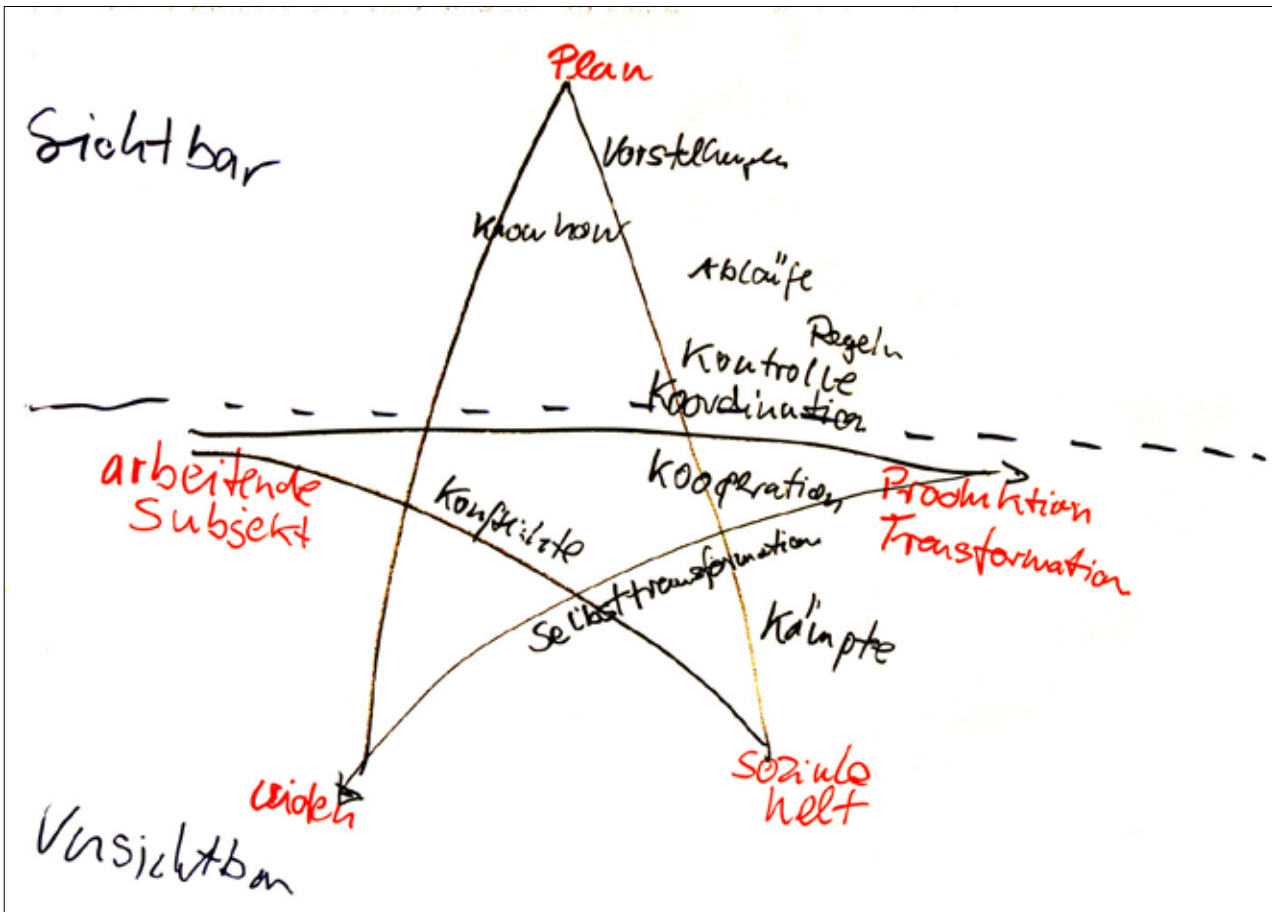 Plan
Sichtbar
Vorstellungen
Know how
Abläufe
Regeln
Kontrolle
Koordination
arbeitende
Subjekt
Kooperation
Konflikte
Produktion
Transformation
Selbsttransformation
Kämpfe
Leiden
Soziale
Welt
Unsichtbar